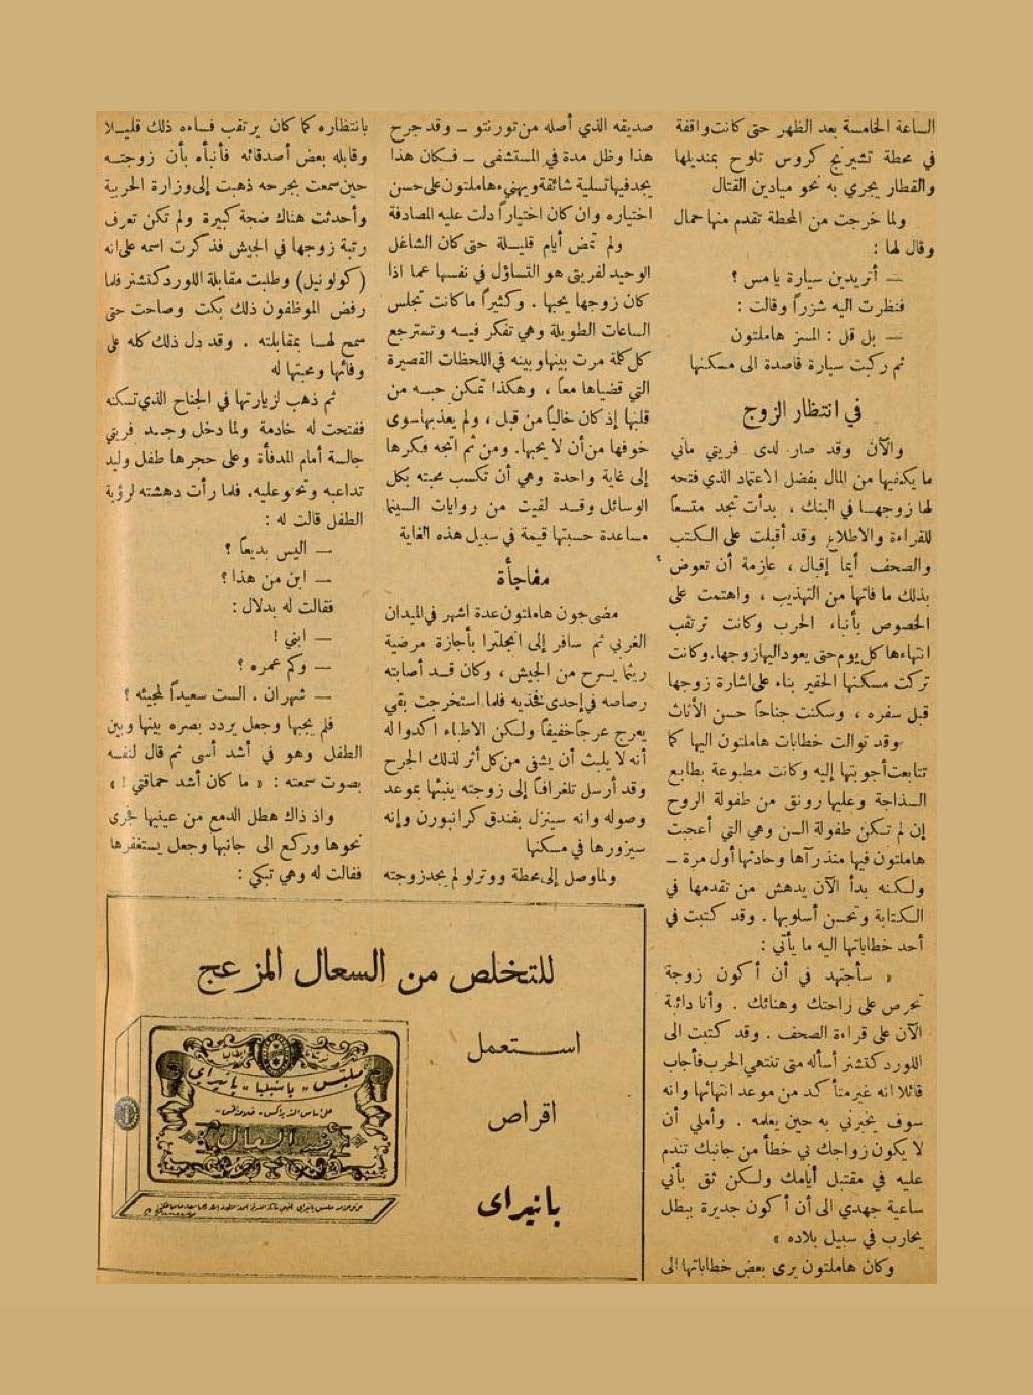 الساعة الخامسة بعد الظهر حتى كانت واقفة
في محطة تشيرنج كروس تلوح بمنديلها
والقطار يجري به نحو ميادين القتال
ولما خرجت من المحطة تقدم منها حمال
وقال لها :
— أتريدين سيارة يامس ؟
فنظرت اليه شزراً وقالت :
— بل قل : المسز هاملتون
ثم ركبت سيارة قاصدة الى مسكنها
في انتظار الزوج
والآن وقد صار لدى فريتي ماني
ما يكفيها من المال بفضل الاعتماد الذي فتحه
لها زوجها في البنك ، بدأت تجد متسعاً
للقراءة والاطلاع وقد أقبلت على الكتب
والصحف أيما إقبال ، عازمة أن تعوض
بذلك ما فاتها من التهذيب ، واهتمت على
الخصوص بأنباء الحرب وكانت ترتقب
انتهاءها كل يوم حتى يعود اليها زوجها. وكانت
تركت مسكنها الحقير بناء على اشارة زوجها
قبل سفره ، وسكنت جناحاً حسن الأثاث
وقد توالت خطابات هاملتون اليها كما
تتابعت أجوبتها إليه وكانت مطبوعة بطابع
السذاجة وعليها رونق من طفولة الروح
إن لم تكن طفولة السن وهي التي أعجبت
هاملتون فيها منذ رآها وحادثها أول مرة —
ولكنه بدأ الآن يدهش من تقدمها في
الكتابة وتحسن أسلوبها . وقد كتبت في
أحد خطاباتها اليه ما يأتي :
« سأجتهد في أن أكون زوجة
تحرص على راحتك وهنائك . وأنا دائبة
الآن على قراءة الصحف . وقد كتبت الى
اللورد كتشنر أسأله متى تنتهي الحرب فأجاب
قائلا انه غير متأكد من موعد انتهائها وانه
سوف يخبرني به حين يعلمه . وأملي أن
لا يكون زواجك بي خطأ من جانبك تندم
عليه في مقتبل أيامك ولكن ثق بأني
ساعية جهدي الى أن أكون جديرة ببطل
يحارب في سبيل بلاده »
وكان هاملتون يرى بعض خطاباتها الى
صديقه الذي أصله من تورنتو — وقد جرح
هذا وظل مدة في المستشفى — فكان هذا
يجد فيها تسلية شائقة ويهنيء هاملتون على حسن
اختياره وان كان اختياراً دلت عليه المصادفة
ولم تمض أيام قليلة حتى كان الشاغل
الوحيد لفريتي هو التساؤل في نفسها عما اذا
كان زوجها يحبها . وكثيراً ما كانت تجلس
الساعات الطويلة وهي تفكر فيه وتسترجع
كل كلمة مرت بينها وبينه في اللحظات القصيرة
التي قضياها معاً ، وهكذا تمكن حبه من
قلبها إذ كان خالياً من قبل ، ولم يعذبها سوى
خوفها من أن لا يحبها. ومن ثم اتجه فكرها
إلى غاية واحدة وهي أن تكسب محبته بكل
الوسائل وقد لقيت من روايات السينما
مساعدة حسبتها قيمة في سبيل هذه الغاية
مفاجأة
مضى جون هاملتون عدة اشهر في الميدان
الغربي ثم سافر إلى انجلترا بأجازة مرضية
ريثما يسرح من الجيش ، وكان قد أصابته
رصاصه في إحدى فخذيه فلما استخرجت بقي
يعرج عرجاً خفيفاً ولكن الاطباء اكدوا له
أنه لا يلبث أن يشفى من كل أثر لذلك الجرح
وقد أرسل تلغرافاً إلى زوجته ينبئها بموعد
وصوله وانه سينزل بفندق كرانبورن وإنه
سيزورها في مسكنها
ولما وصل إلى محطة ووترلو لم يجد زوجته
بانتظاره كما كان يرتقب فساءه ذلك قليلا
وقابله بعض أصدقائه فأنبأه بأن زوجته
حين سمعت بجرحه ذهبت إلى وزارة الحربية
وأحدثت هناك ضجة كبيرة ولم تكن تعرف
رتبة زوجها في الجيش فذكرت اسمه على انه
(كولونيل) وطلبت مقابلة اللورد كتشنر فلما
رفض الموظفون ذلك بكت وصاحت حتى
سمح لها بمقابلته . وقد دل ذلك كله على
وفائها ومحبتها له
ثم ذهب لزيارتها في الجناح الذي تسكنه
ففتحت له خادمة ولما دخل وجد فريتي
جالسة أمام المدفأة وعلى حجرها طفل وليد
تداعبه وتحنو عليه. فلما رأت دهشته لرؤية
الطفل قالت له :
— اليس بديعاً ؟
— ابن من هذا ؟
فقالت له بدلال :
— ابني !
— وكم عمره ؟
— شهران . الست سعيداً لمجيئه ؟
فلم يجبها وجعل يردد بصره بينها وبين
الطفل وهو في أشد أسى ثم قال لنفسه
بصوت سمعته : « ما كان أشد حماقتي ! »
واذ ذاك هطل الدمع من عينيها فجرى
نحوها وركع الى جانبها وجعل يستغفرها
فقالت له وهي تبكي :
للتخلص من السعال المزعج
استعمل
اقراص
بانيراى
ملبس " باستيليا " بانيراي
ضد السعال